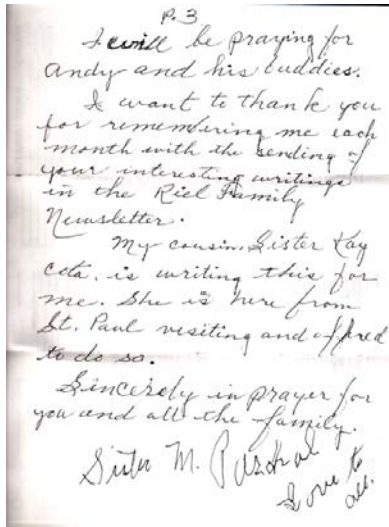 P. 3
I will be praying for
Andy and his buddies.
I want to thank you
for remembering me each
month with the sending of
your interesting writings
in the Riel Family
Newsletter.
My cousin, Sister Kay
is writing this for
me. She is here from
St. Paul visiting and offered
to do so.
Sincerely in prayer for
you and all the family.
Sister M. Paschal
Love to
all.